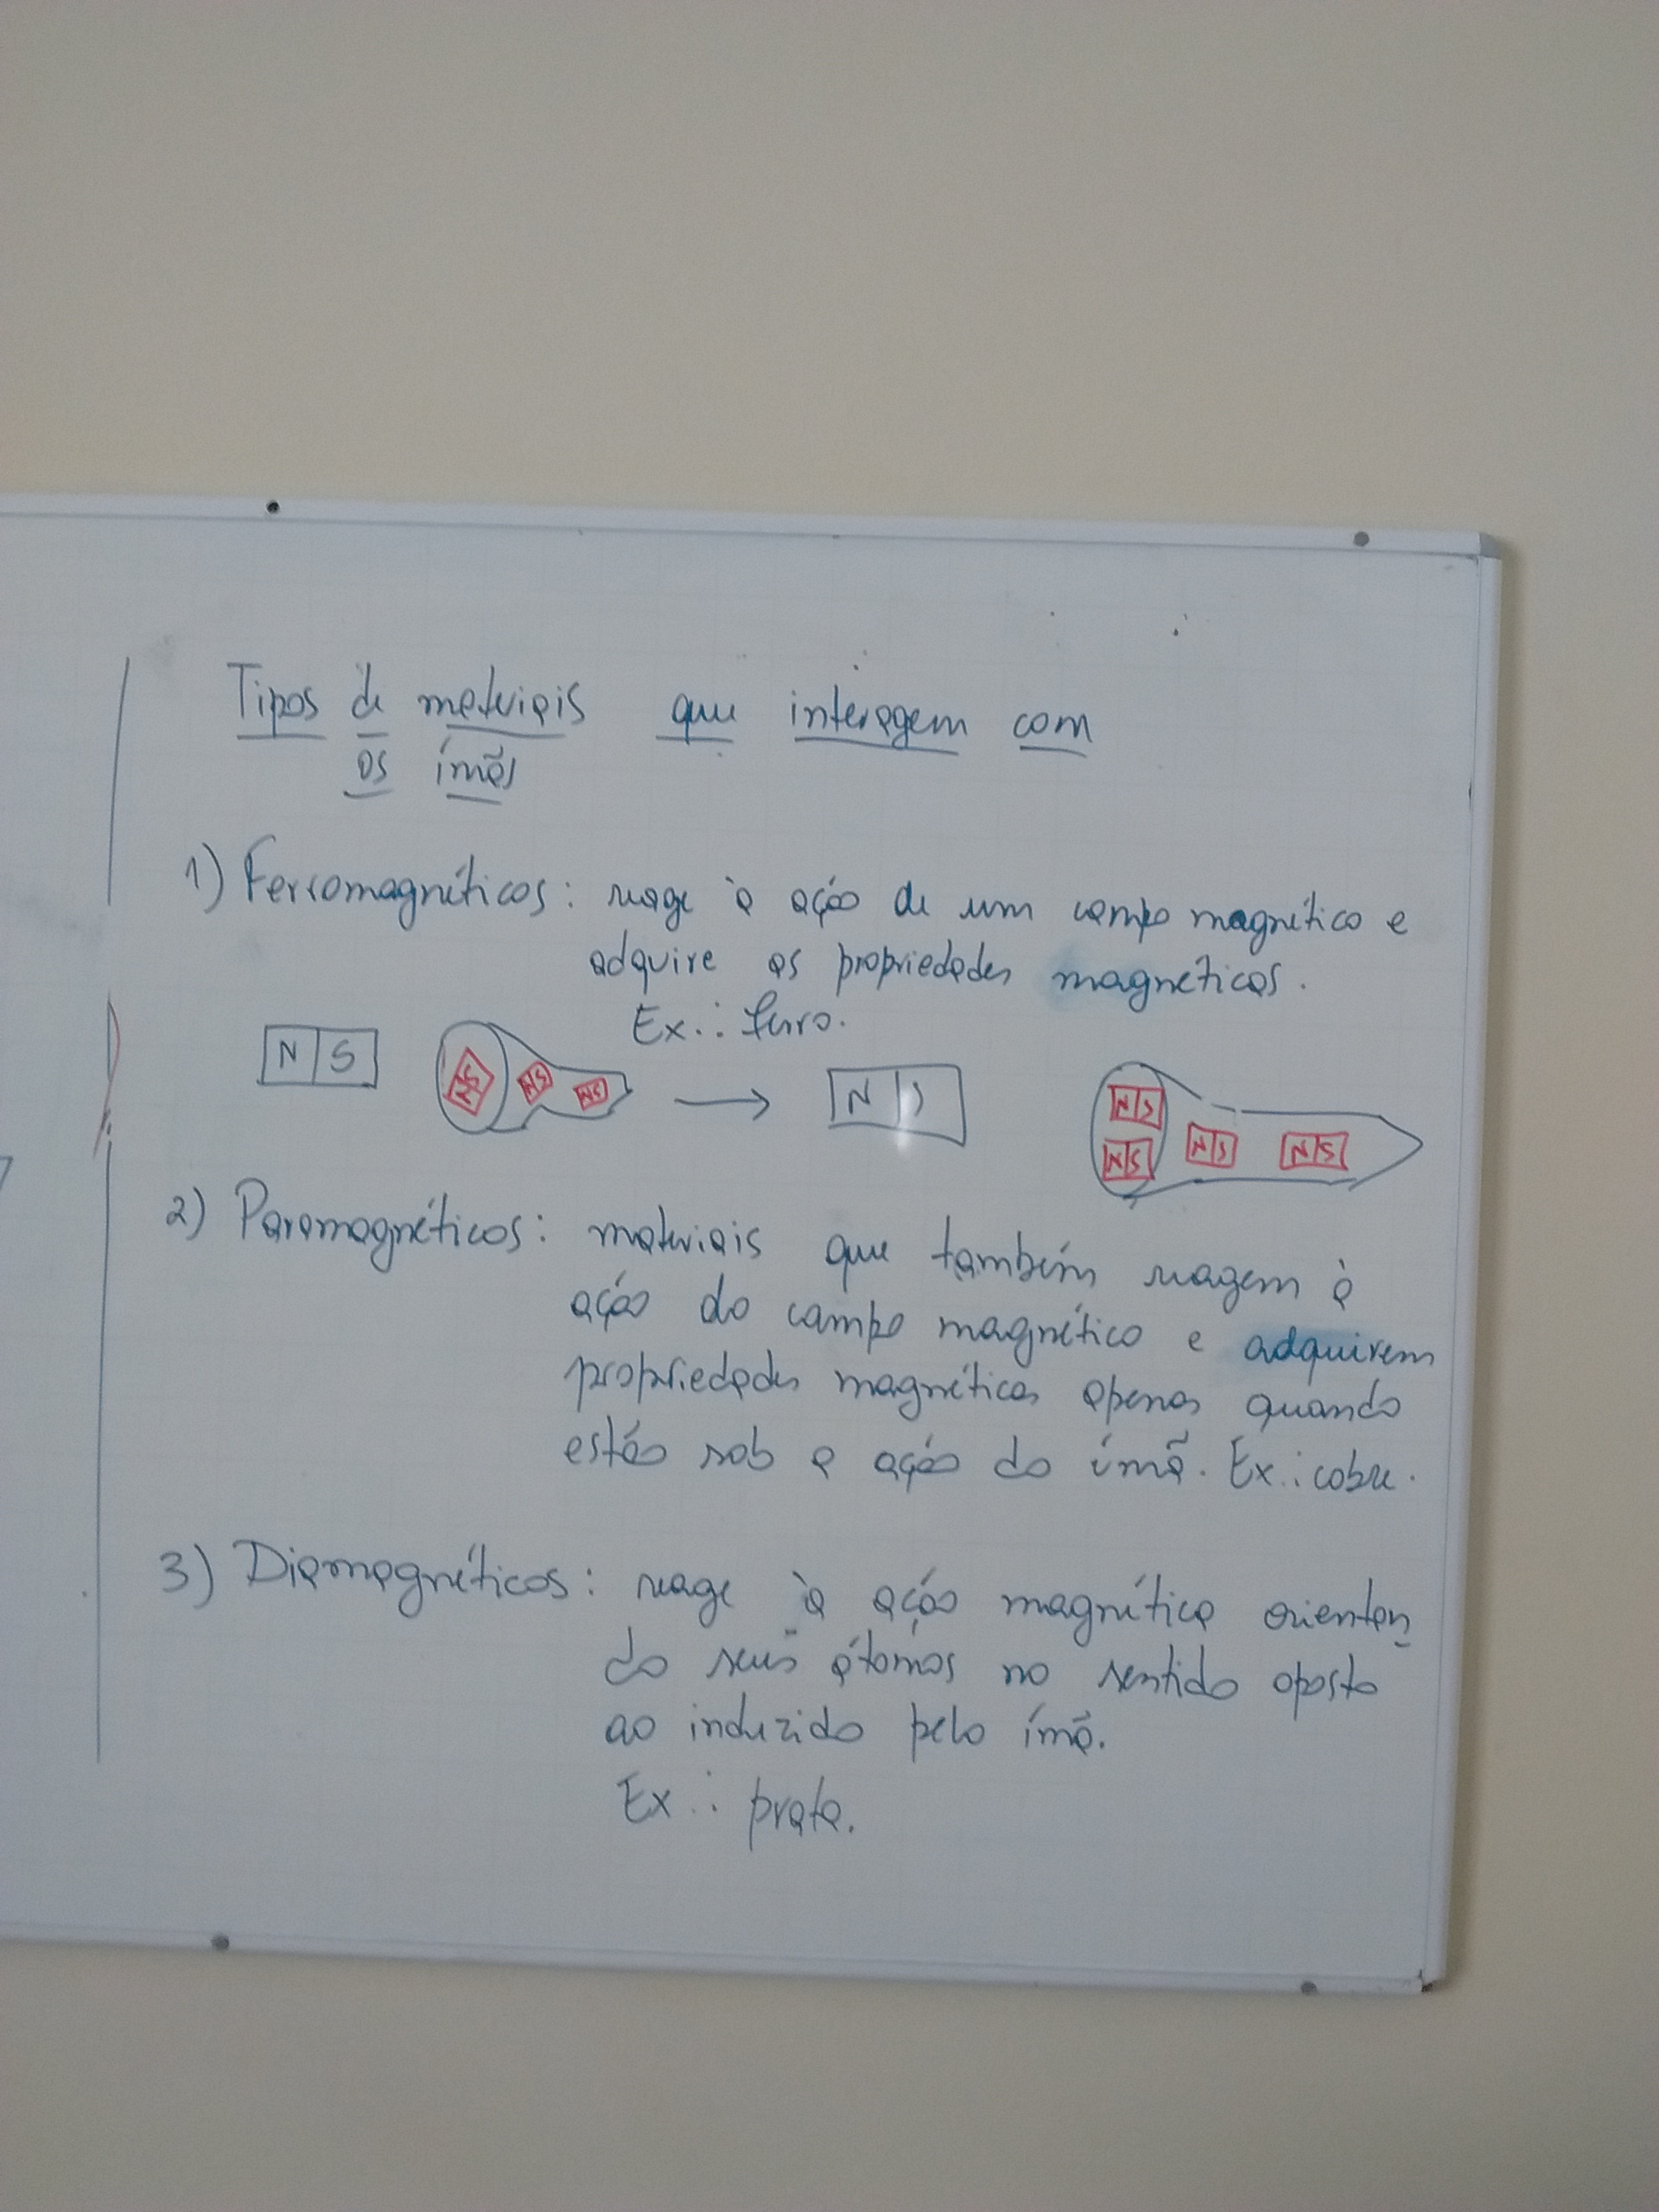 Tipos de materiais que interagem com
os ímãs
1) Ferromagnéticos: reage à ação de um campo magnético e
adquire as propriedades magnéticas.
Ex.: ferro.
N S
N S
N S
N S
N S
N S
N S
N S
N S
2) Paramagnéticos: materiais que também reagem à
ação do campo magnético e adquirem
propriedades magnéticas apenas quando
estão sob a ação do ímã. Ex.: cobre.
3) Diamagnéticos: reage à ação magnética orientan
do seus átomos no sentido oposto
ao induzido pelo ímã.
Ex.: prata.